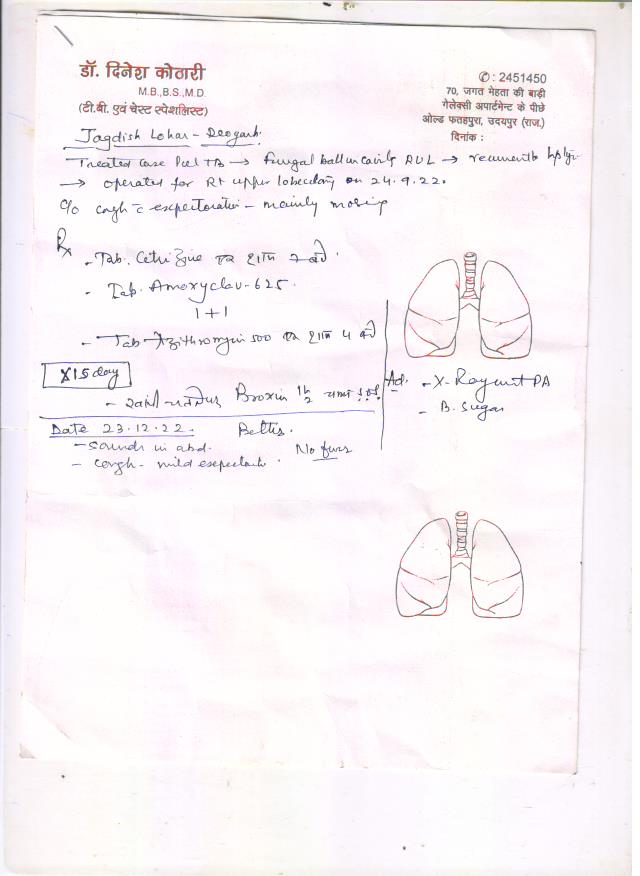 डॉ. दिनेश कोठारी
M.B.,B.S.,M.D.
(टी.बी. एवं चेस्ट स्पेशलिस्ट)
✆ : 2451450
70, जगत मेहता की बाड़ी
गेलेक्सी अपार्टमेन्ट के पीछे
ओल्ड फतहपुरा, उदयपुर (राज.)
दिनांक :
Jagdish Lohar - Deogarh
Treated case Pul TB → fungal ball in cavity RUL → recurrent
→ operated for Rt upper lobectomy on 24.9.22.
c/o cough c expectoration - mainly morning
Rx
- Tab. Cetrizine एक शाम
- Tab. Amoxyclav-625.
1 + 1
- Tab Azithromycin 500 एक शाम
X15 day
Broxin
Ad. - X-Ray PA
- B. Sugar
Date 23.12.22. Better.
- sounds in abd. No fever
- cough - mild